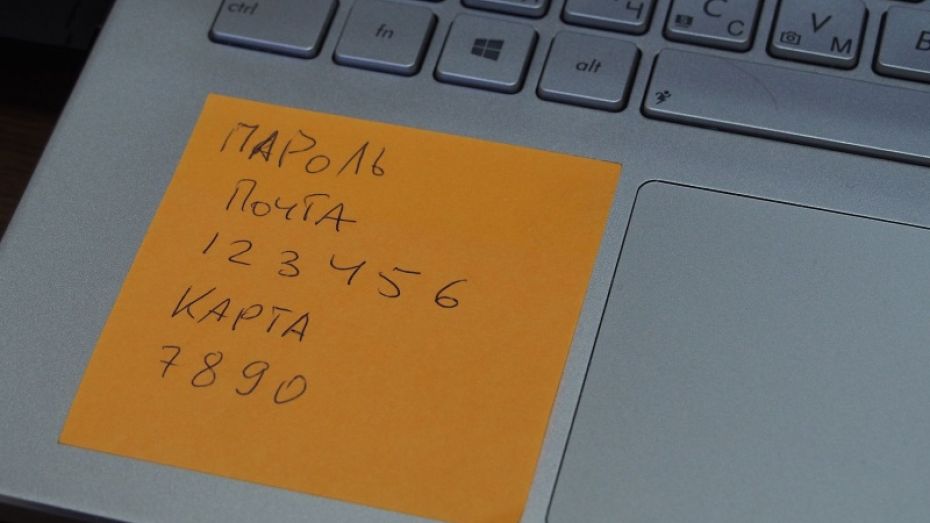 ctrl
fn
alt
Ч
C С
V М
B
ПАРОЛЬ
ПОЧТА
123456
КАРТА
7890